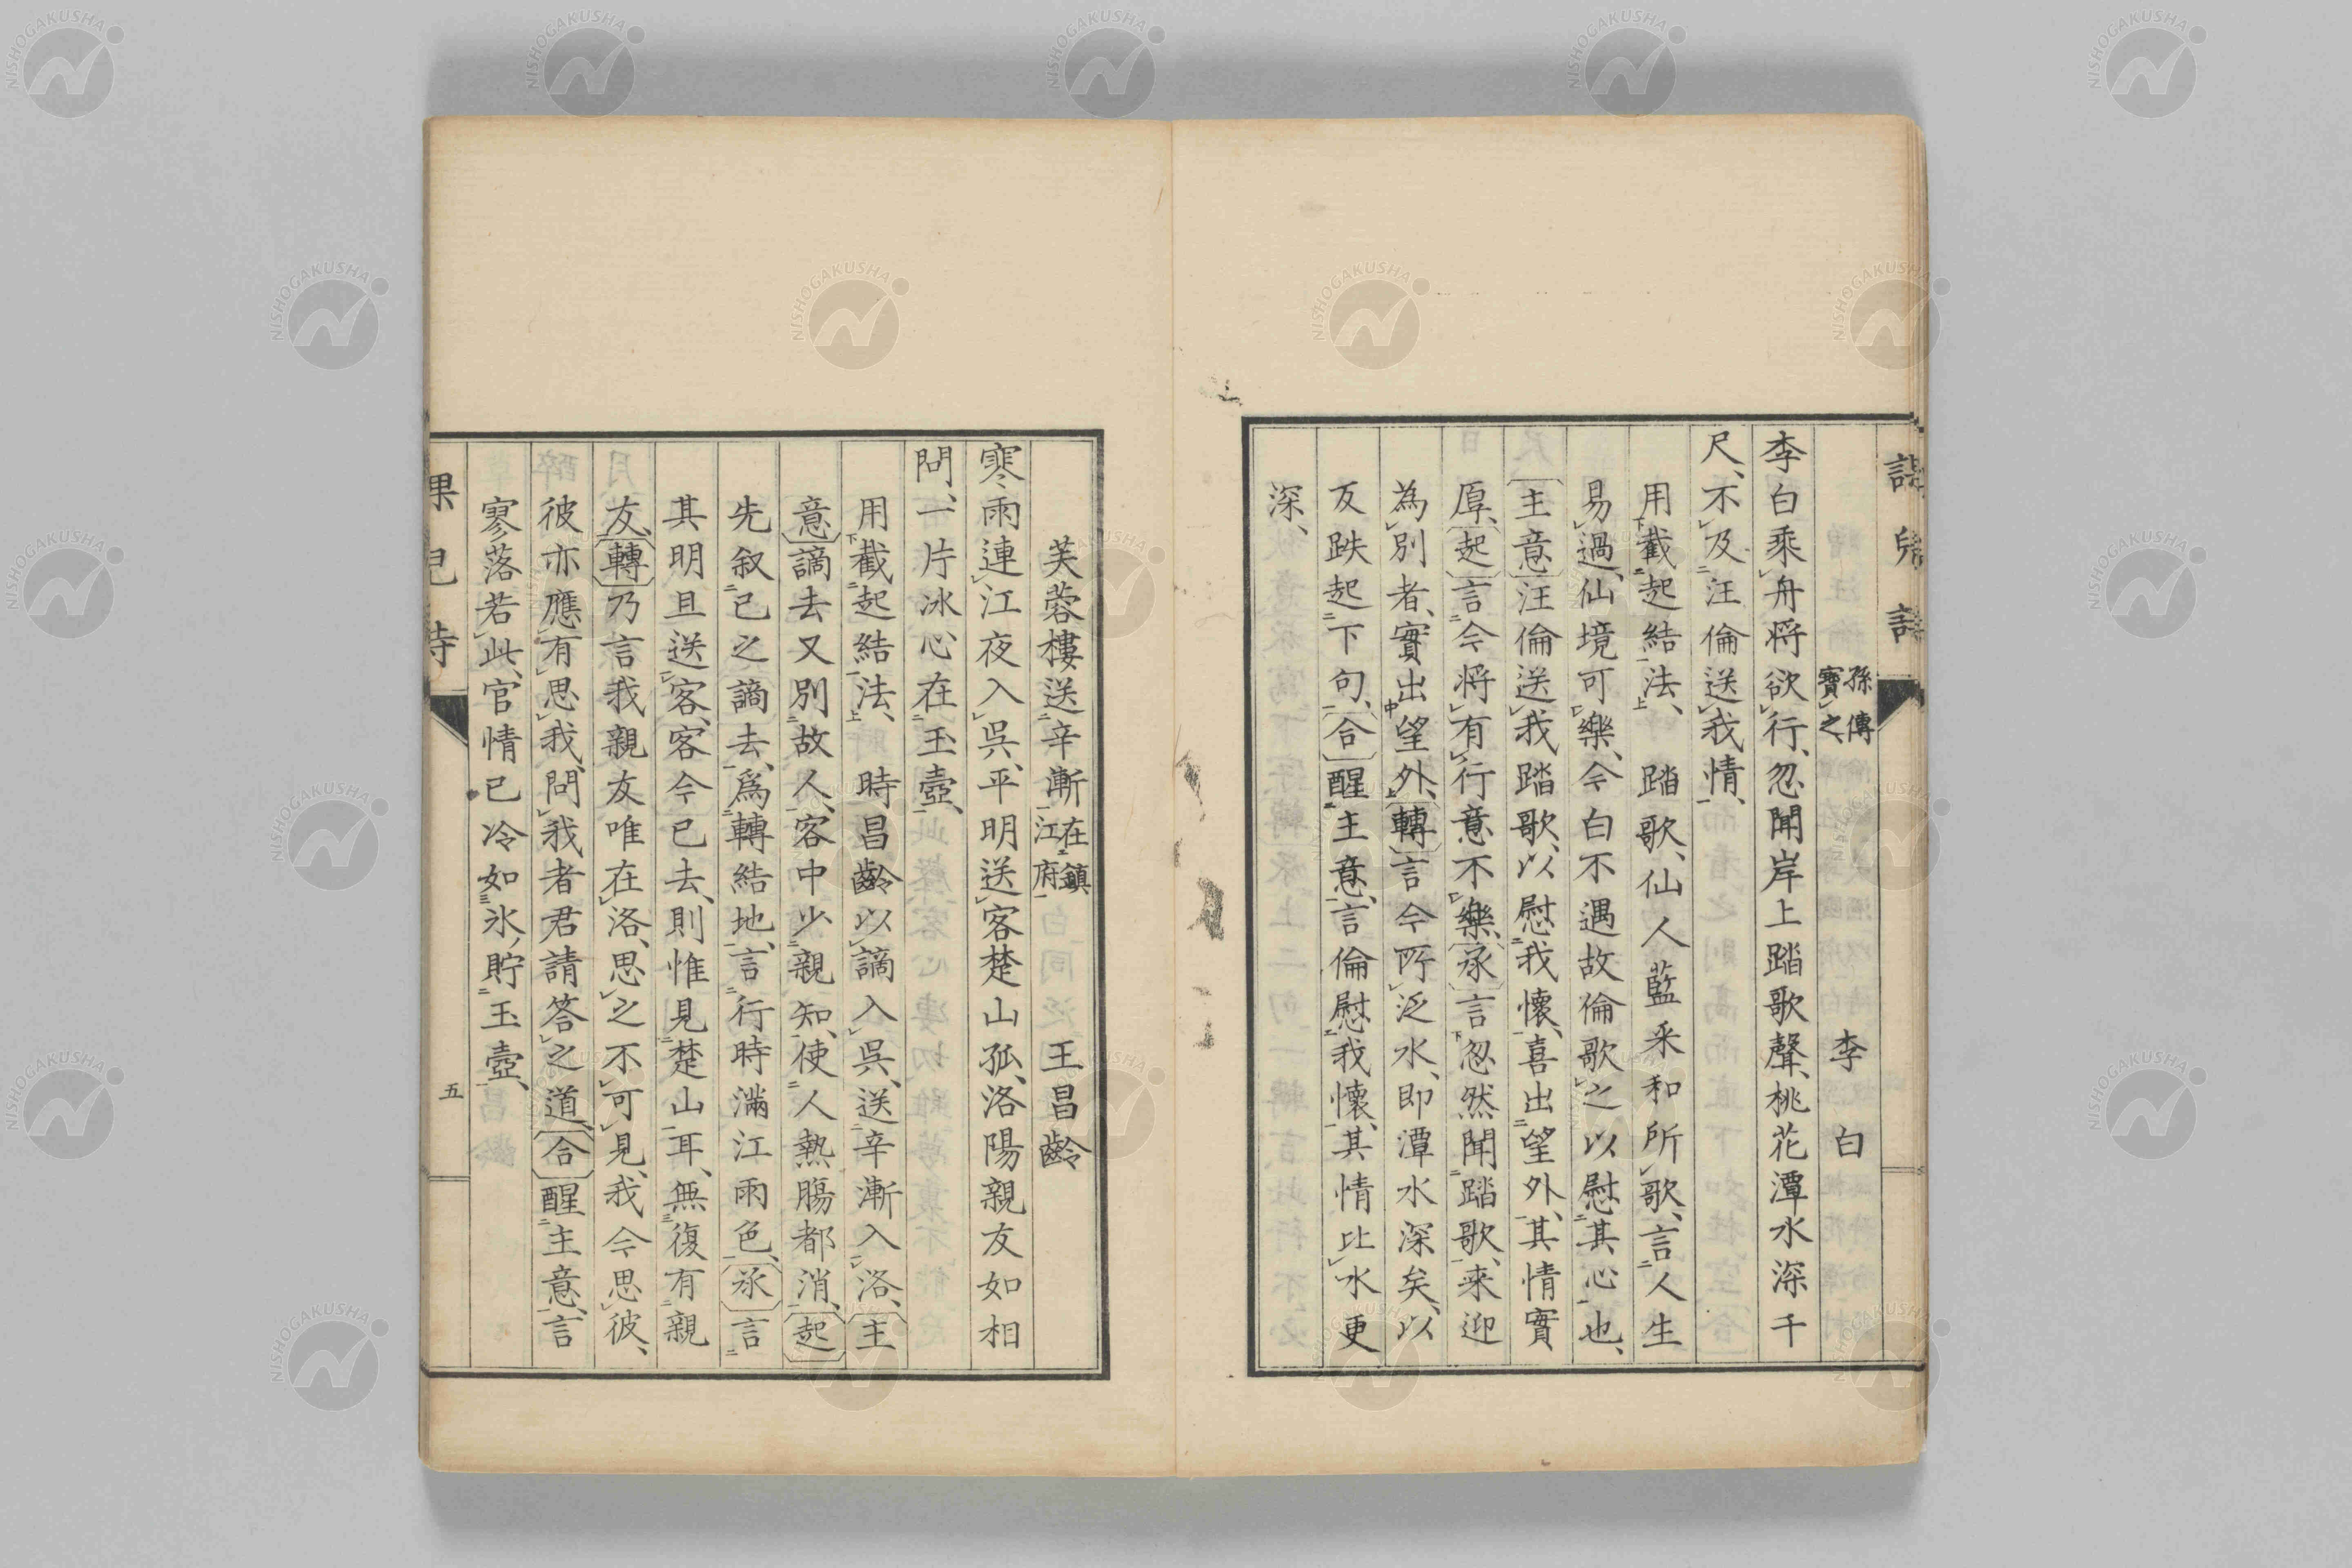 課兒詩
孫傳寶之 李白
李白乘舟將欲行、忽聞岸上踏歌聲、桃花潭水深千
尺、不及汪倫送我情、
用截起結法、 踏歌、仙人藍采和所歌、言人生
易過、仙境可樂、今白不遇故倫歌之以慰其心也、
主意汪倫送我踏歌、以慰我懷、喜出望外、其情實
厚、起言今將有行意不樂、承言忽然聞踏歌、来迎
為別者、實出望外、轉言今所泛水、即潭水深矣、以
反跌起下句、合醒主意、言倫慰我懷、其情比水更
深、
芙蓉樓送辛漸 在鎮江府 王昌齡
寒雨連江夜入吳、平明送客楚山孤、洛陽親友如相
問、一片冰心在玉壺、
用截起結法、 時昌齡以謫入吳、送辛漸入洛、主
意謫去又別故人、客中少親知、使人熱腸都消、起
先叙己之謫去、爲轉結地、言行時滿江雨色、承言
其明旦送客、客今已去、則惟見楚山耳、無復有親
友、轉乃言我親友唯在洛、思之不可見、我今思彼、
彼亦應有思我、問我者君請答之道、合醒主意、言
寥落若此、官情已冷如氷、貯玉壺、
課兒詩
五
NISHOGAKUSHA